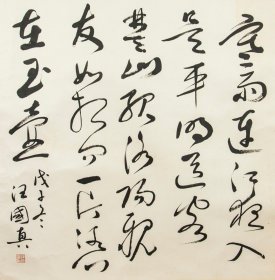 寒雨连江夜入
吴平明送客
楚山孤洛阳亲
友如相问一片冰心
在玉壶
戊子冬
汪國真